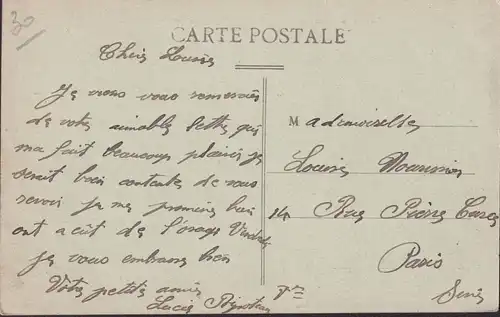 30
CARTE POSTALE
Chère Louise
Je viens vous remercier
de votre aimable lettre qui
ma fait beaucoup plaisir je
serait bien contente de vous
revoir je me promène bien
ont a cût de l'orage
je vous embrasse bien
Votre petite amie
Lucie
Mademoiselle
Louise
14 Rue Pierre
Paris